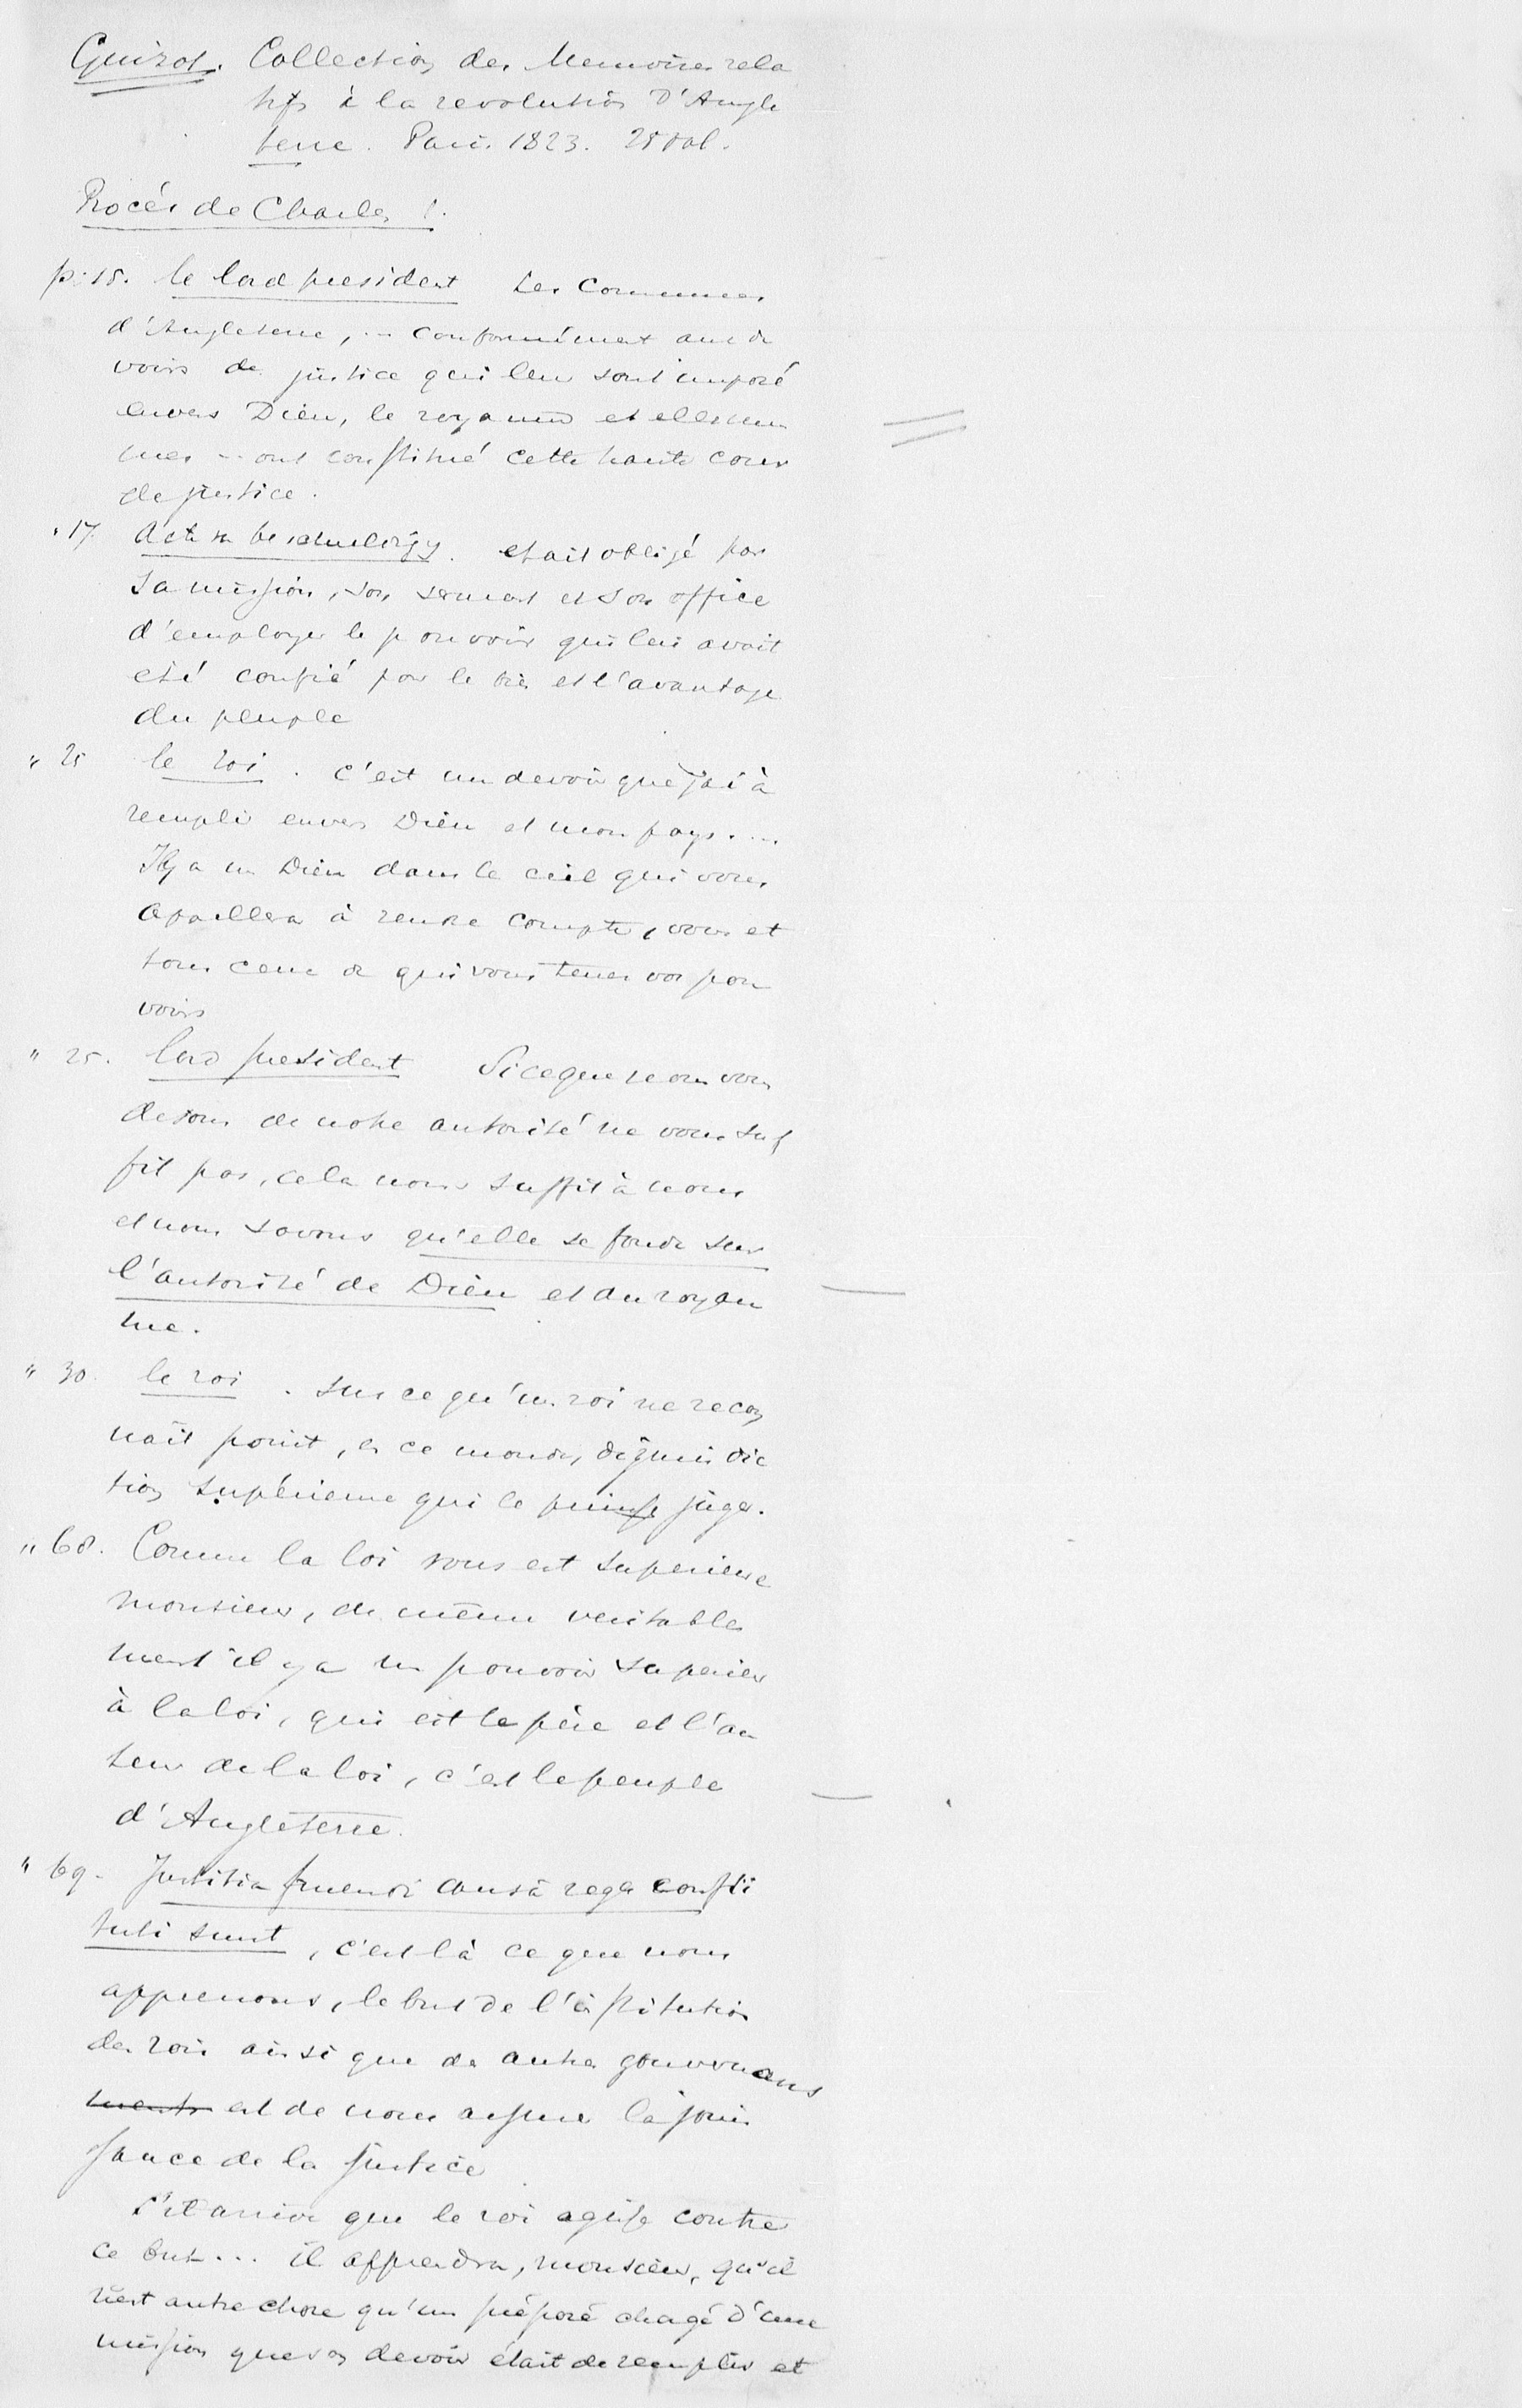 Guizot. Collection des Memoires rela
tifs à la revolution D'Angle
terre. Paris. 1823. 25 vol.
Procés de Charles I.
p. 15. le lord president Les Communes
d'Angleterre, ... conformément aux de
voirs de justice qui leur sont imposé
envers Dieu, le royaume et elles mem
mes ... ont constitué cette haute cour
de justice.
" 17. Acte van beschuldiging. etait obligé par
sa mission, son serment et son office
d'employer le pouvoir qui lui avait
eté confié pour le bien et l'avantage
du peuple
" 25 le roi. c'est un devoir que j'ai à
remplir envers Dieu et mon pays....
Il y a un Dieu dans le ciel qui vous
apaillera à rendre compte, vous et
tous ceux de qui vous tenez vos pou
voirs
" 25. lord president Si ce que nous vous
desons de notre autorité ne vous suf
fit pas, cela nous suffit à nous
et nous savons qu'elle se fonde sur
l'autorité de Dieu et du royau
me.
" 30. le roi. sur ce qu'un roi ne recon
naît point, en ce monde, de juris dic
tion supérieure qui le puisse juger.
" 68. Comme la loi vous est superieure
monsieur, de même veritable
ment il y a un pouvoir superieur
à la loi, qui est le père et l'au
teur de la loi, c'est le peuple
d'Angleterre.
" 69. Justitia fruendi causâ reges consti
tuti sunt, c'est là ce que nous
apprenons, le but de l'institution
des rois ainsi que des autres gouvernans
ments est de nous assurer la jouis
sance de la justice
S'il arrive que le roi agisse contre
ce but... il apprendra, monsieur, qu'il
n'est autre chose qu'un préposé chargé d'une
mission que son devoir était de remplir et